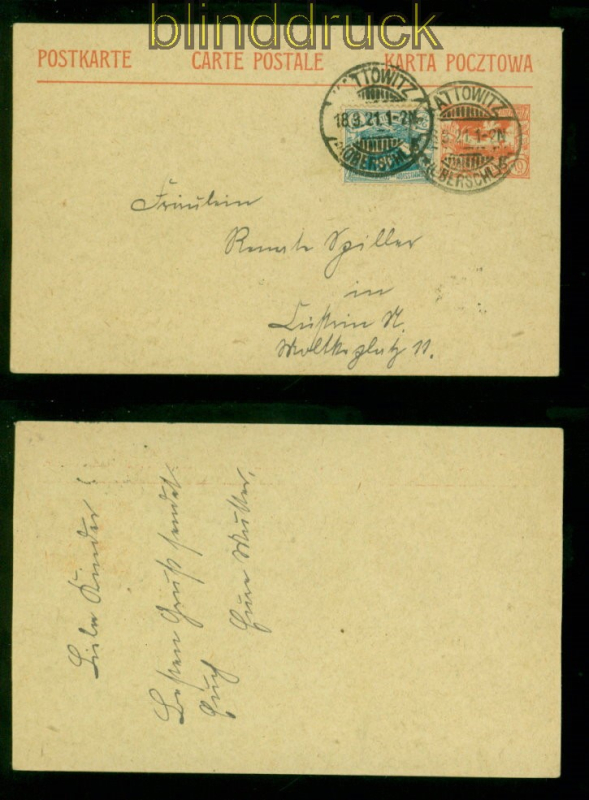 blinddruck
POSTKARTE CARTE POSTALE KARTA POCZTOWA
KATTOWITZ
18.9.21.1-2N
(OBERSCHL.)
ATTOWITZ
9.21.1-2N
OBERSCHL.
Fräulein
Renate Spiller
in
Cüstrin N.
Moltkeplatz 11.
Liebe Kinder!
Besten Gruß sendet
Euch Eure Mutter.